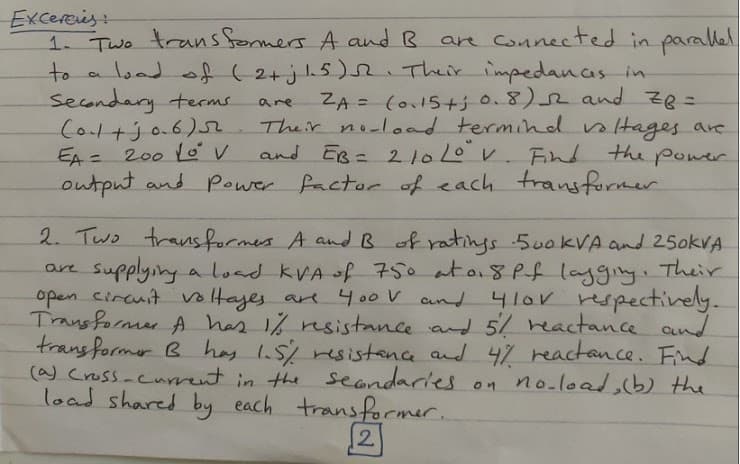 Excerceies:
1. Two transformers A and B are connected in parallel
to a load of (2+j1.5)Ω. Their impedances in
Secondary terms are ZA = (0.15+j0.8)Ω and ZB =
(0.1+j0.6)Ω. Their no-load terminal voltages are
EA = 200 ∠0° V and EB = 210 ∠0° V. Find the power
output and power factor of each transformer
2. Two transformers A and B of ratings 500KVA and 250KVA
are supplying a load KVA of 750 at 0.8 P.f lagging. Their
open circuit voltages are 400 V and 410V respectively.
Transformer A has 1% resistance and 5% reactance and
transformer B has 1.5% resistance and 4% reactance. Find
(a) Cross-current in the secondaries on no-load, (b) the
load shared by each transformer.
2